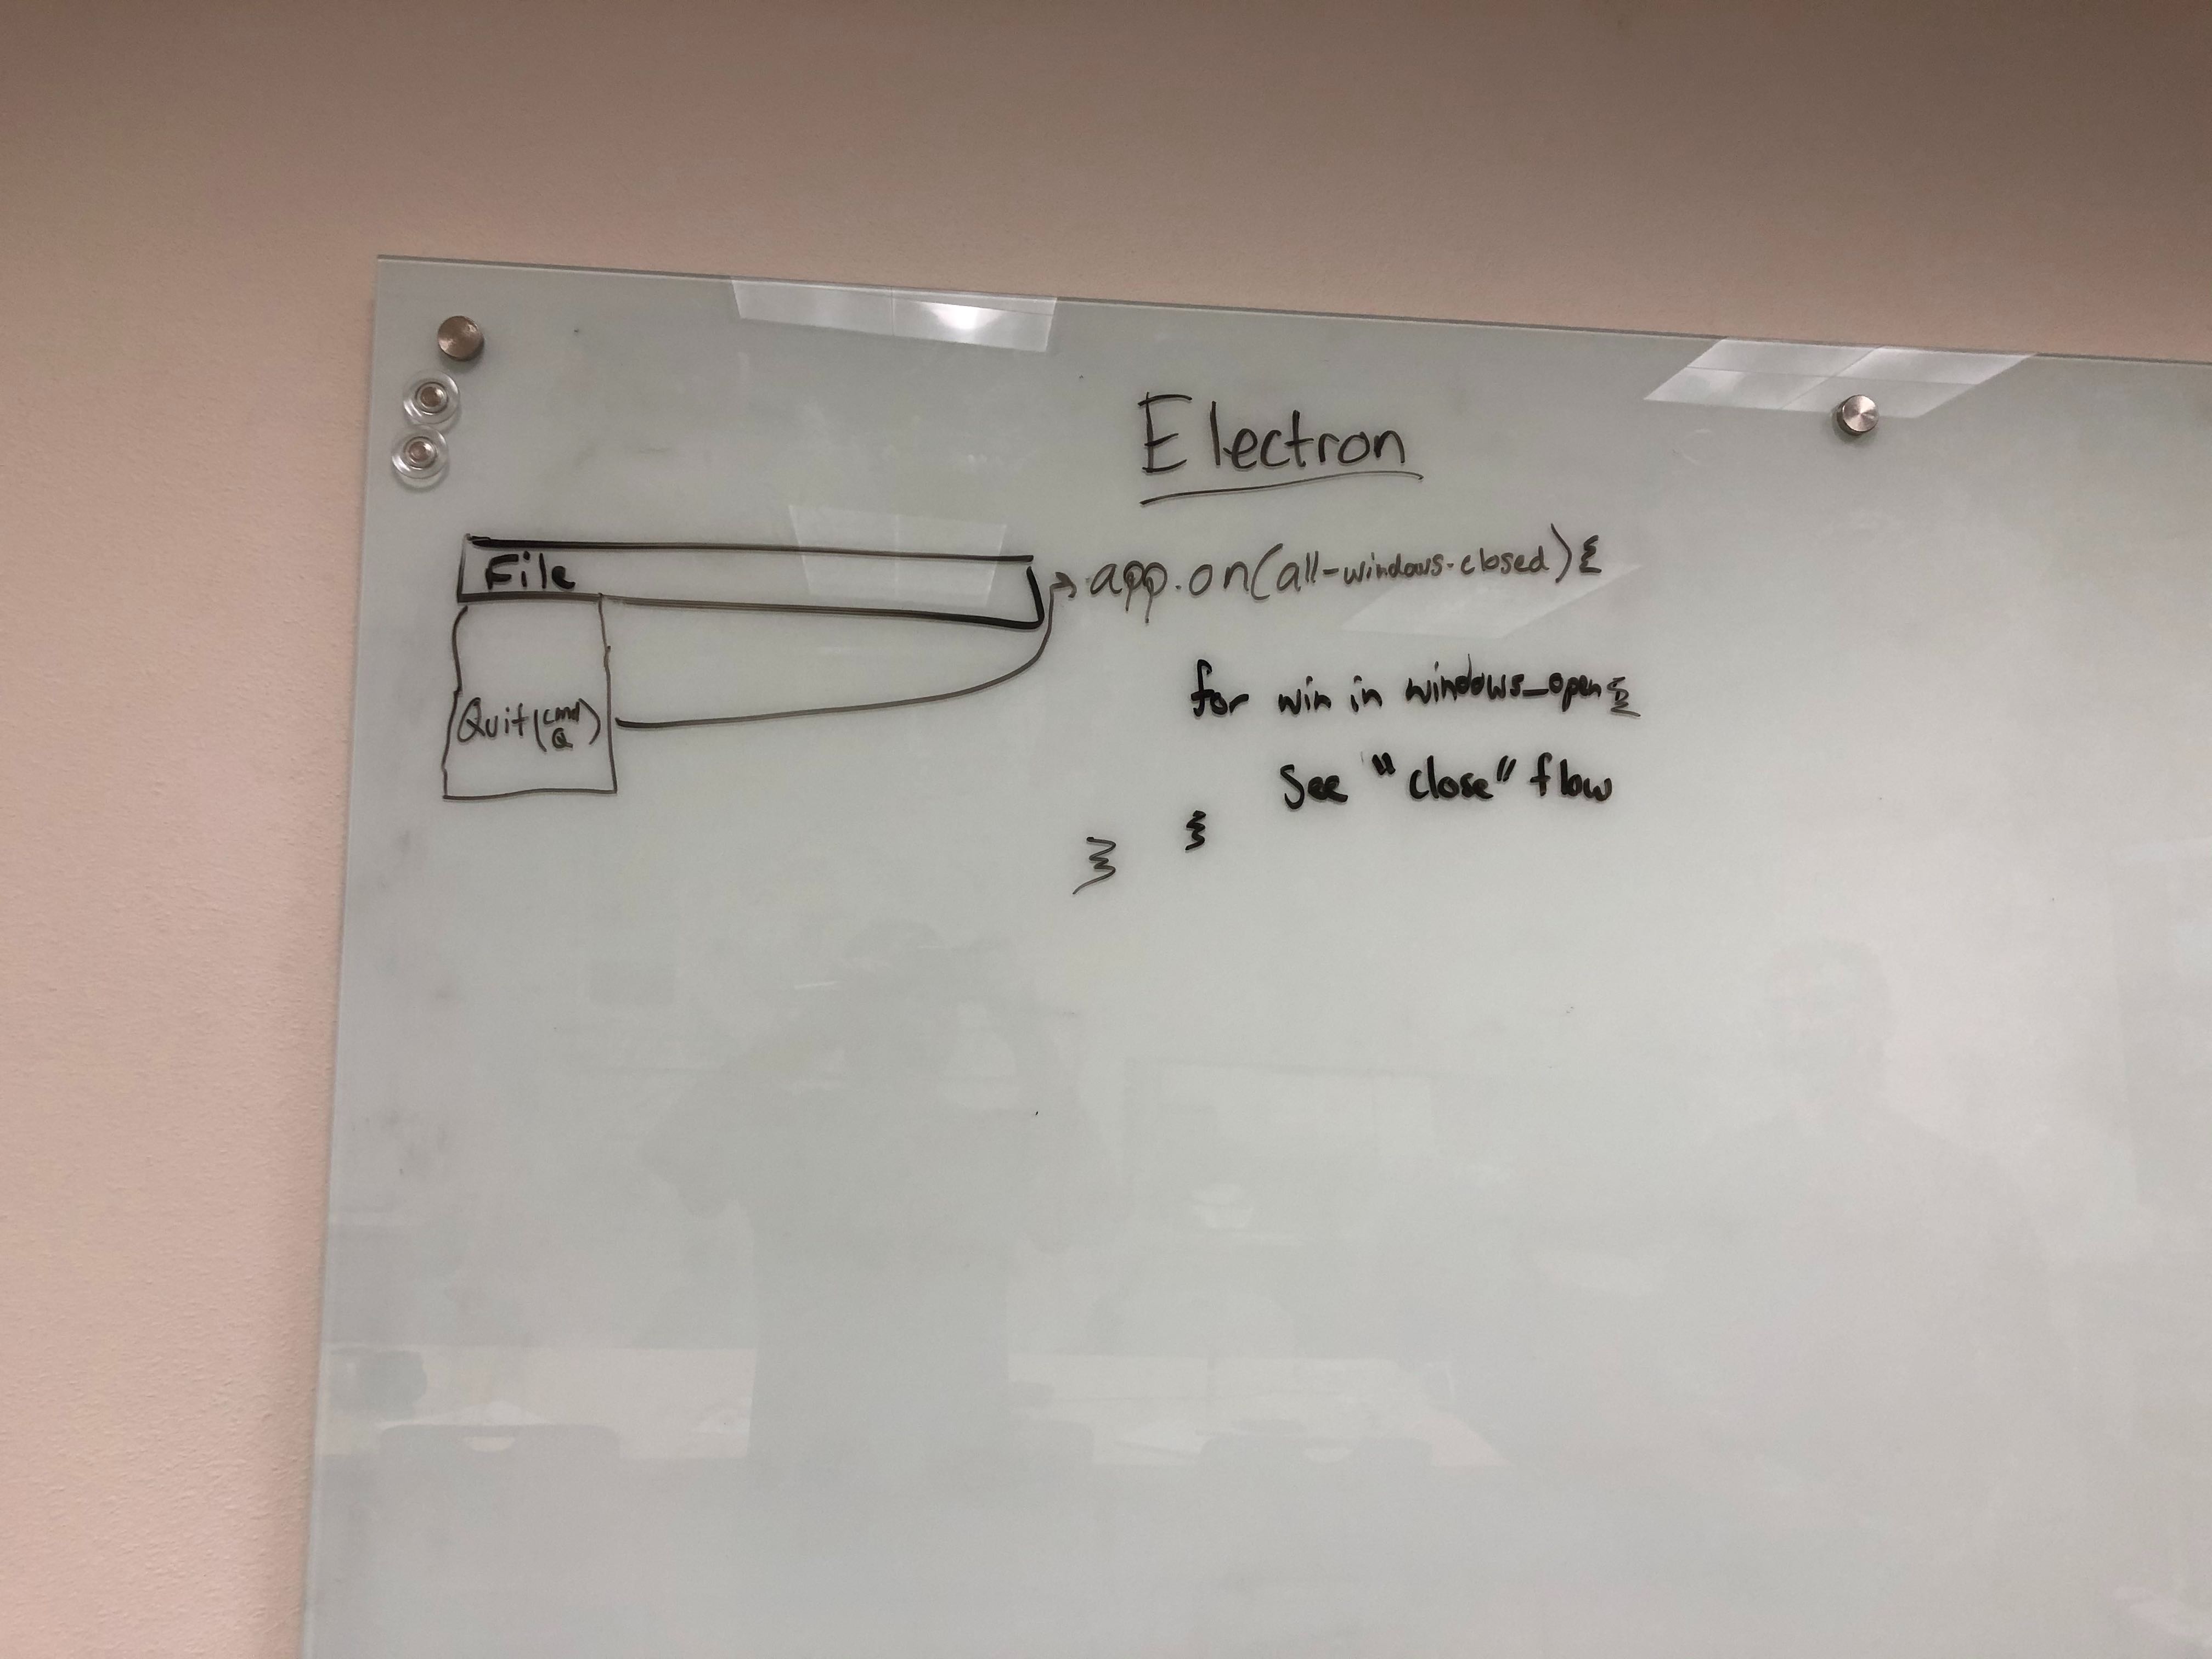 Electron
File
Quit (cmd Q)
app.on(all-windows-closed){
for win in windows_open{
See "close" flow
}
}